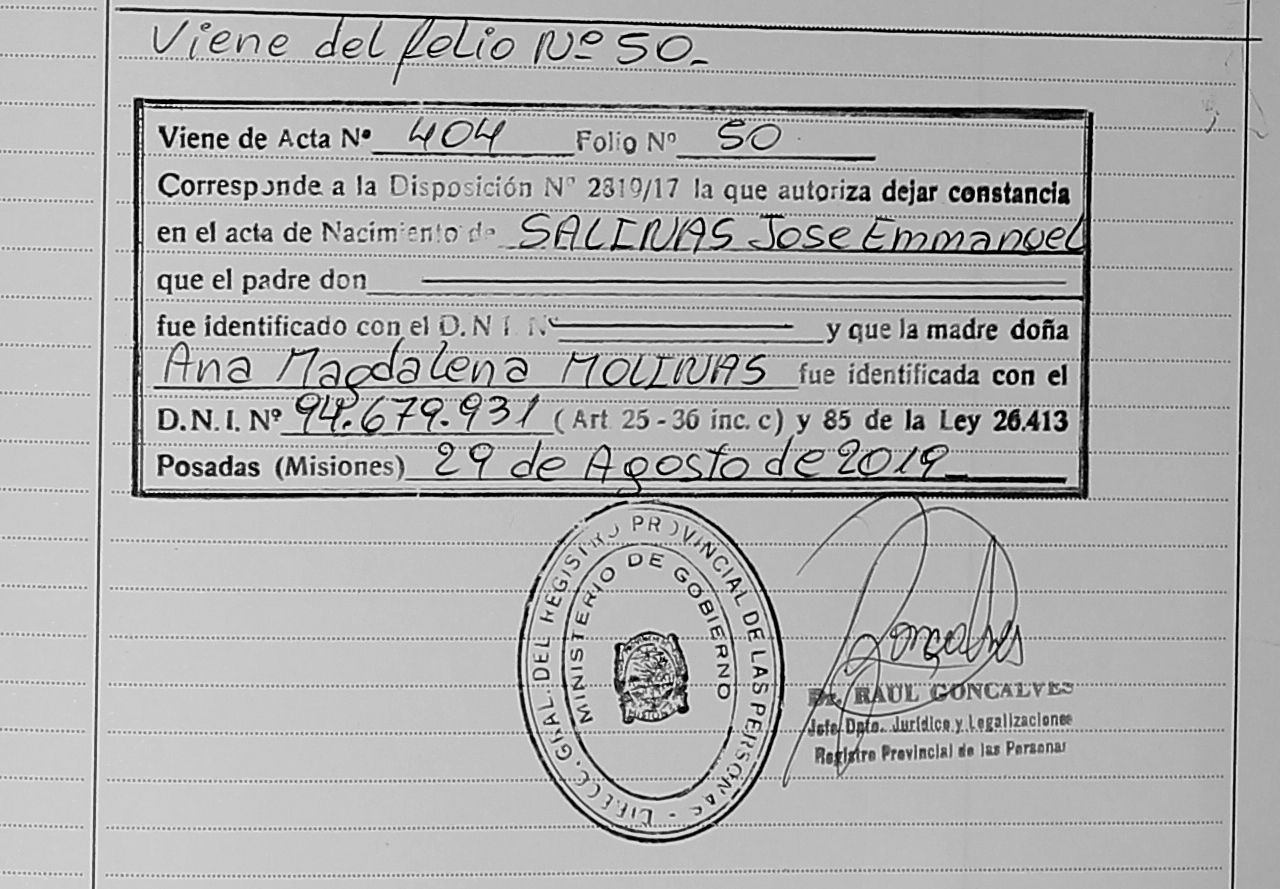 Viene del folio Nº 50_
Viene de Acta Nº 404 Folio Nº 50
Corresponde a la Disposición Nº 2819/17 la que autoriza dejar constancia
en el acta de Nacimiento de SALINAS Jose Emmanuel
que el padre don
fue identificado con el D.N.I. Nº y que la madre doña
Ana Magdalena MOLINAS fue identificada con el
D.N.I. Nº 94.679.931 (Art 25-36 inc. c) y 85 de la Ley 26.413
Posadas (Misiones) 29 de Agosto de 2019_
GRAL. DEL REGISTRO PROVINCIAL DE LAS PERSONAS -
MINISTERIO DE GOBIERNO
Goncalves
Dr. RAUL GONCALVES
Jefe Dpto. Jurídico y Legalizaciones
Registro Provincial de las Personas